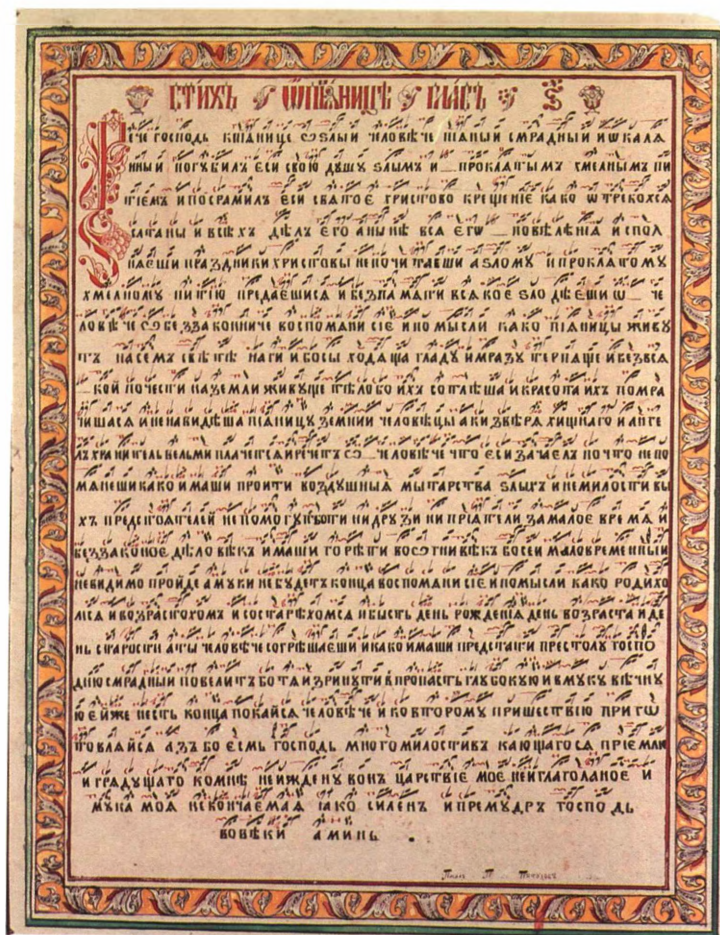 СТИХЪ Ѿ ПЬЯНИЦѢ ГЛАСЪ
Рече господь кпіанице ѽ злыи человѣче піаныи смрадныи ишкаля
нныи погубилъ еси свою дꙋшꙋ злымъ и проклатымъ хмелнымъ пи
тіемъ и посрамилъ еси святое христово крещеніе како ѿтрекохся
сатаны и всѣхъ дѣлъ его а нынѣ вся егѡ повелѣнія испол
няеши праздники христовы непочитавши а зломꙋ и проклатомꙋ
хмелномꙋ питію предаешися и безпамяти всякое зло дѣеши ѡ че
ловѣче ѽ беззаконниче воспомани сіе и помысли како піаницы живꙋ
тъ насемъ свѣтѣ наги и босы ходяща гладꙋ и мразꙋ терпаще и безвся
кой почести на земли живꙋще тѣлобо ихъ сотлѣша и красота ихъ помра
чишася и ненавидѣша піаницꙋ земнии человѣцы аки звѣря хищнаго и анге
лъ хранитель вельми плачется и речетъ ѽ человѣче что еси зачалъ почто непо
мянеши како имаши проити воздꙋшныя мытарства злыхъ и немилостивы
хъ предстоятелей непомогꙋтъбо ти ни дрꙋзи ни пріатели замалое время и
беззаконое дѣло вѣкъ имаши горѣти восѽтни вѣкъ босеи маловременныи
невидимо пройде а мꙋки небꙋдетъ конца воспомани сіе и помысли како родихо
мся и возрастохомъ и состарѣхомся и бысть день рожденія день возраста и де
нь старости а ты человѣче согрѣшаеши и како имаши предстати престолꙋ госпо
дню смрадный повелитъ бо тя изринꙋти в пропасть глꙋбокꙋю и вмꙋкꙋ вѣчнꙋ
ю ейже нестъ конца покайся человѣче и ко второмꙋ пришествію пригѡ
товляйся азъ бо есмь господь многомилостивъ кающагося пріемлю
и градꙋщаго комнѣ неижденꙋ вонъ царствіе мое неизглаголаное и
мꙋка моя нескончаемая іако силенъ и премꙋдръ господь
вовѣки аминь.